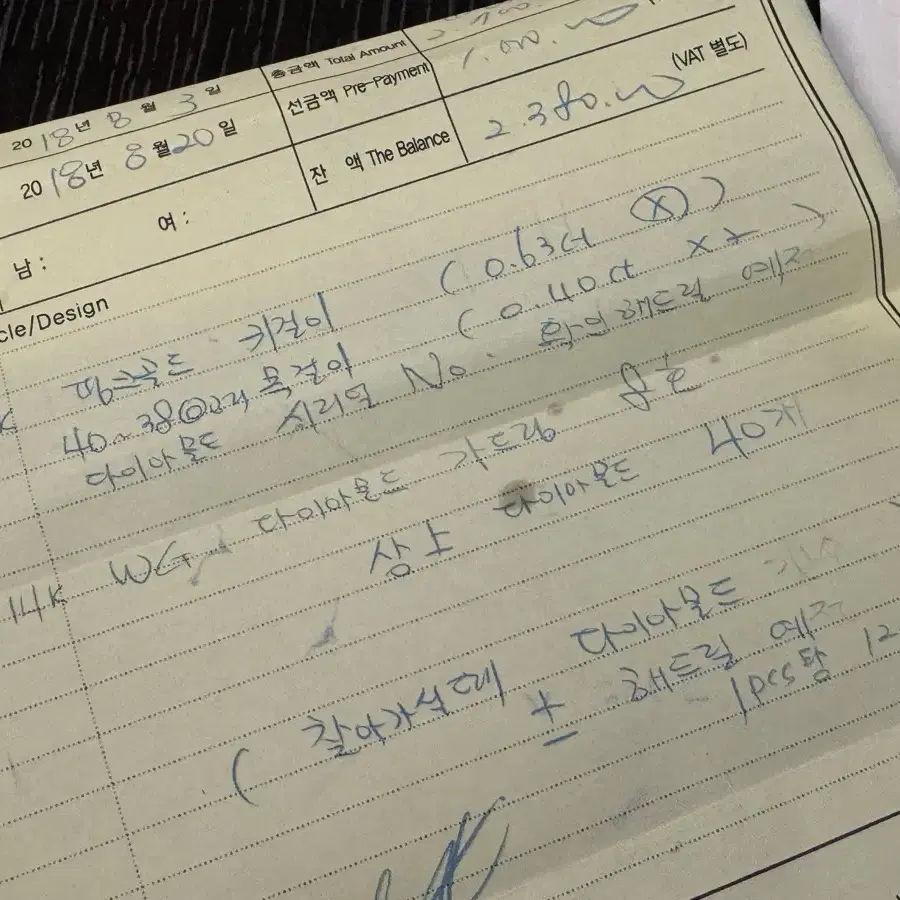 2018년 8월 3일
총금액 Total Amount
2018년 8월 20일
선금액 Pre-Payment 1.000.
(VAT 별도)
잔 액 The Balance 2.380.
남 : 여 :
cle/Design
핑크골드 귀걸이 (0.63ct X)
40~38 목걸이 (0.40ct XX)
다이아몬드 시리얼 No. 확인해드릴 예정
14K WG 다이아몬드 가드링 8호
상上 다이아몬드 40개
(찾아가실때 다이아몬드
± 해드릴 예정
1pcs당 12